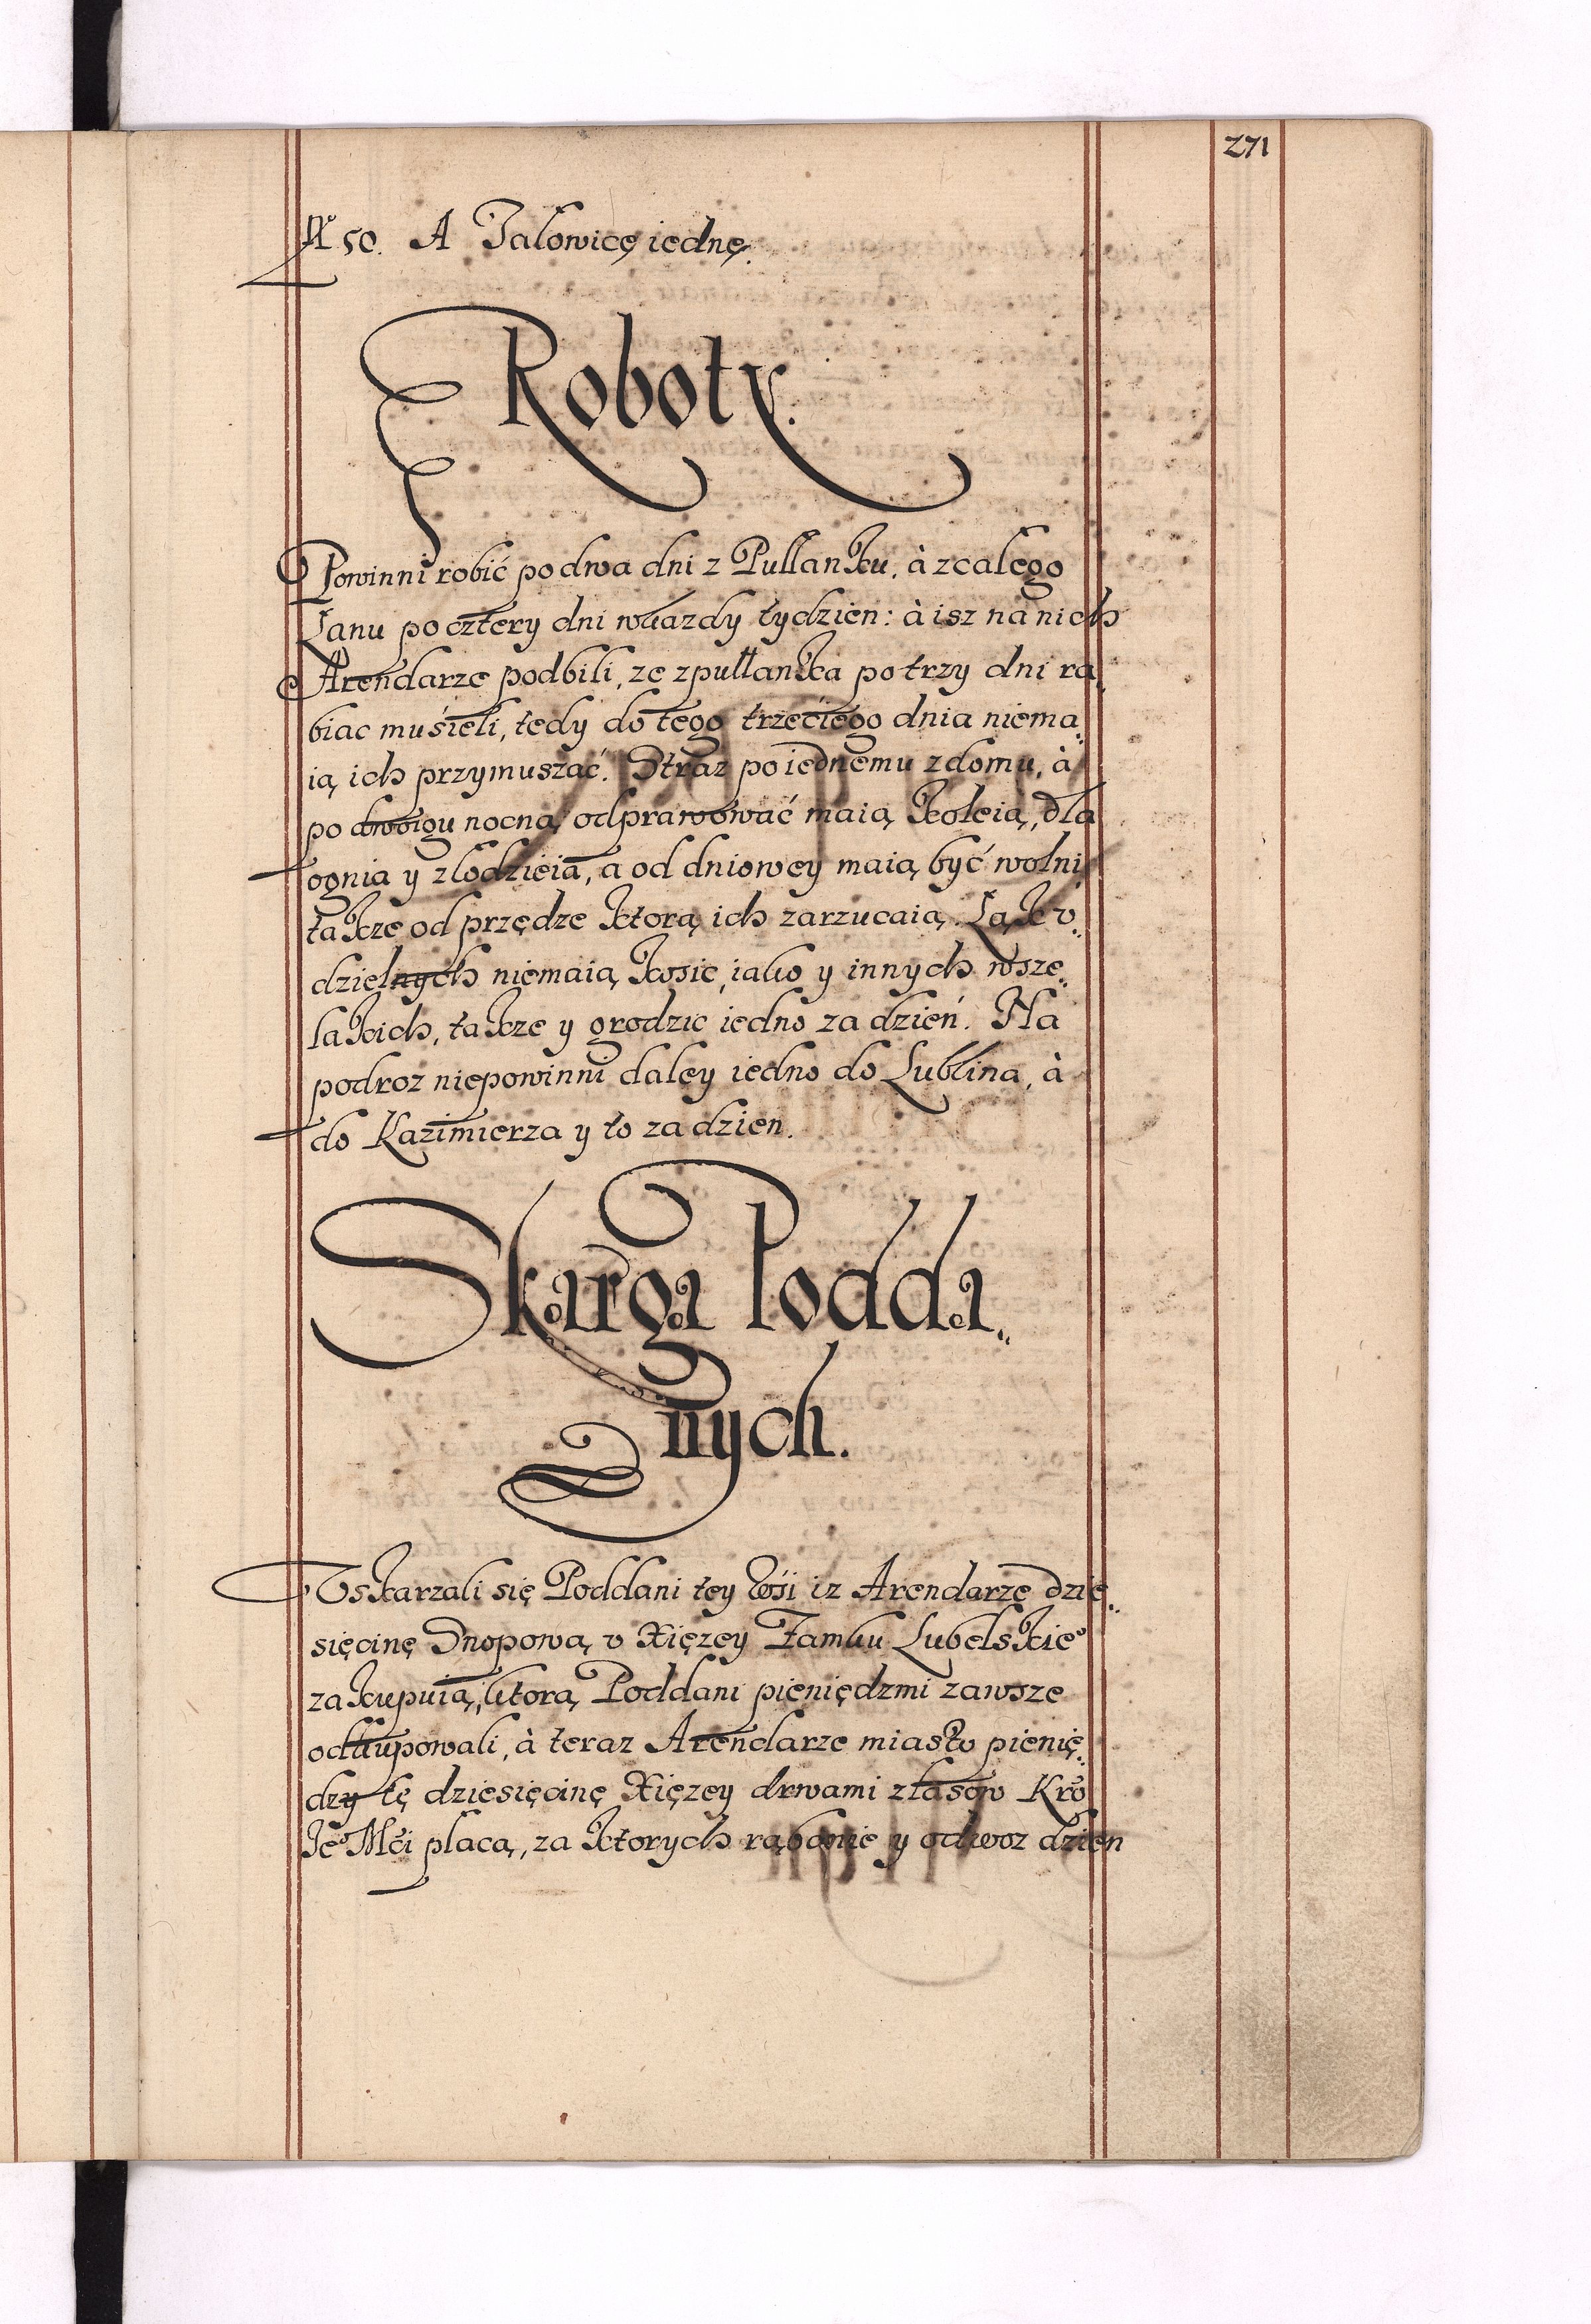 271
No 50. A Jalowicę iednę.
Roboty.
Powinni robić po dwa dni z Pullanku, à z calego
Łanu po cztery dni w kazdy tydzien: à isz na nich
Arendarze podbili, ze z pullanka po trzy dni ra„
biac muśieli, tedy do tego trzećiego dnia niema„
ią ich przymuszać. Straz po iednemu z domu, à
po dwoigu nocną odprawować maią koleią, dla
ognia y zlodzieia, a od dniowey maią być wolni
takze od przędze ktorą ich zarzucaią. Ląk v„
dzielnych niemaią kosic, iako y innych wsze„
lakich, takze y grodzic iedno za dzień. Na
podroz niepowinni daley iedno do Lublina, à
do Kazimierza y to za dzien.
Skarga Podda„
nych.
Vskarzali się Poddani tey Wśi iz Arendarze dzie„
sięcinę Snopową v Xięzey Zamku Lubelskie°
zakupuią, ktorą Poddani pieniędzmi zawsze
odkupowali, à teraz Arendarze miasto pienię„
dzy tę dziesięcinę Xięzey drwami z lasow Kro
Je° Mci placą, za ktorych rąbanie y odwoz dzien